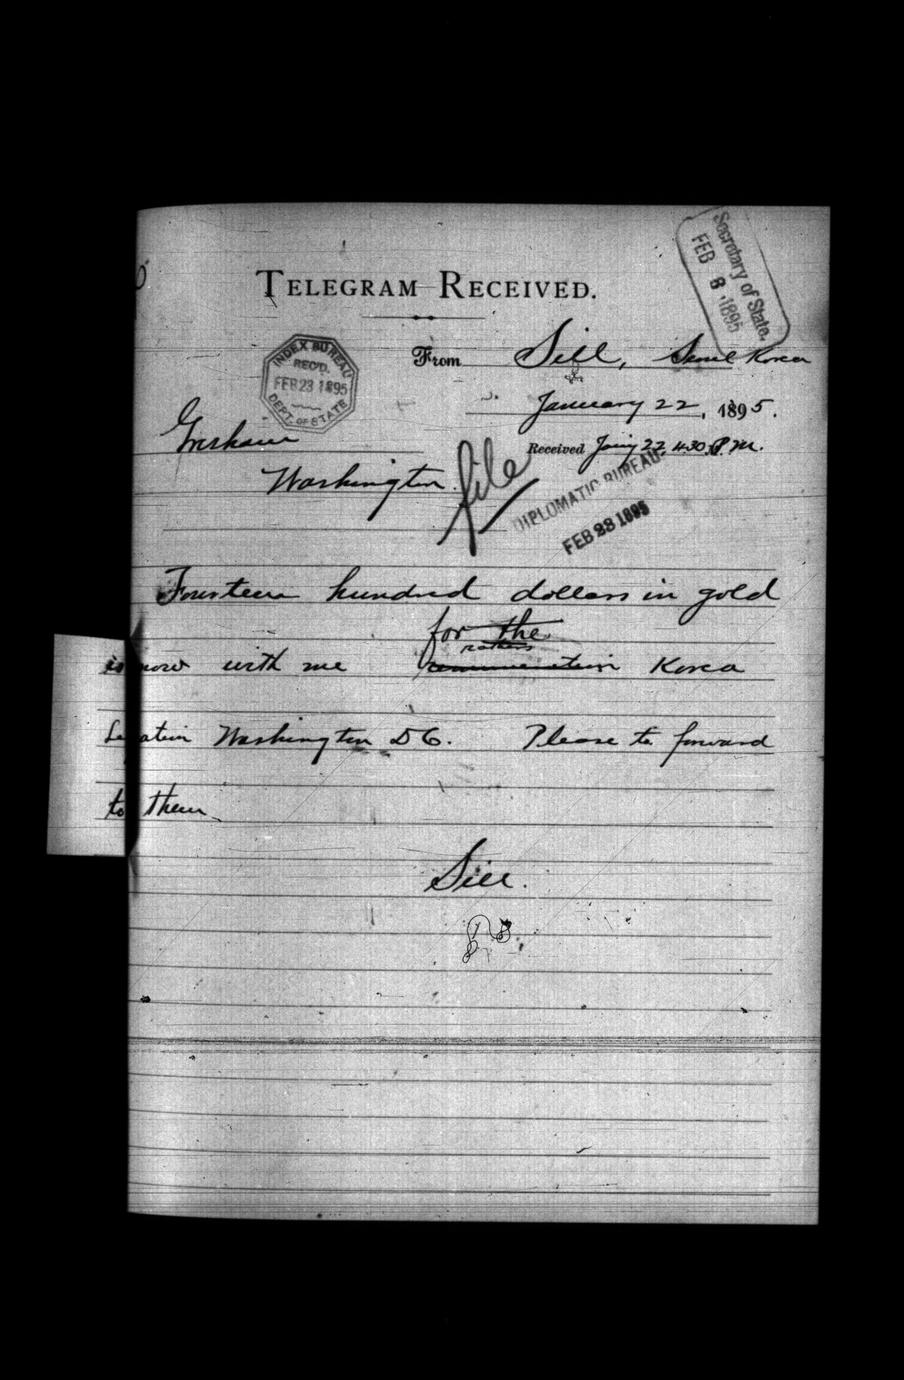 TELEGRAM RECEIVED.
Secretary of State.
FEB 8 1895
From Sill, Seoul Korea
INDEX BUREAU
REC'D.
FEB 23 1895
DEPT. OF STATE
January 22, 1895.
Gresham
Received Jany 22, 4.30 P.M.
Washington.
file
DIPLOMATIC BUREAU
FEB 23 1895
Fourteen hundred dollars in gold
for the
is now with me Korea
Legation Washington D C. Please to forward
to them.
Sill.